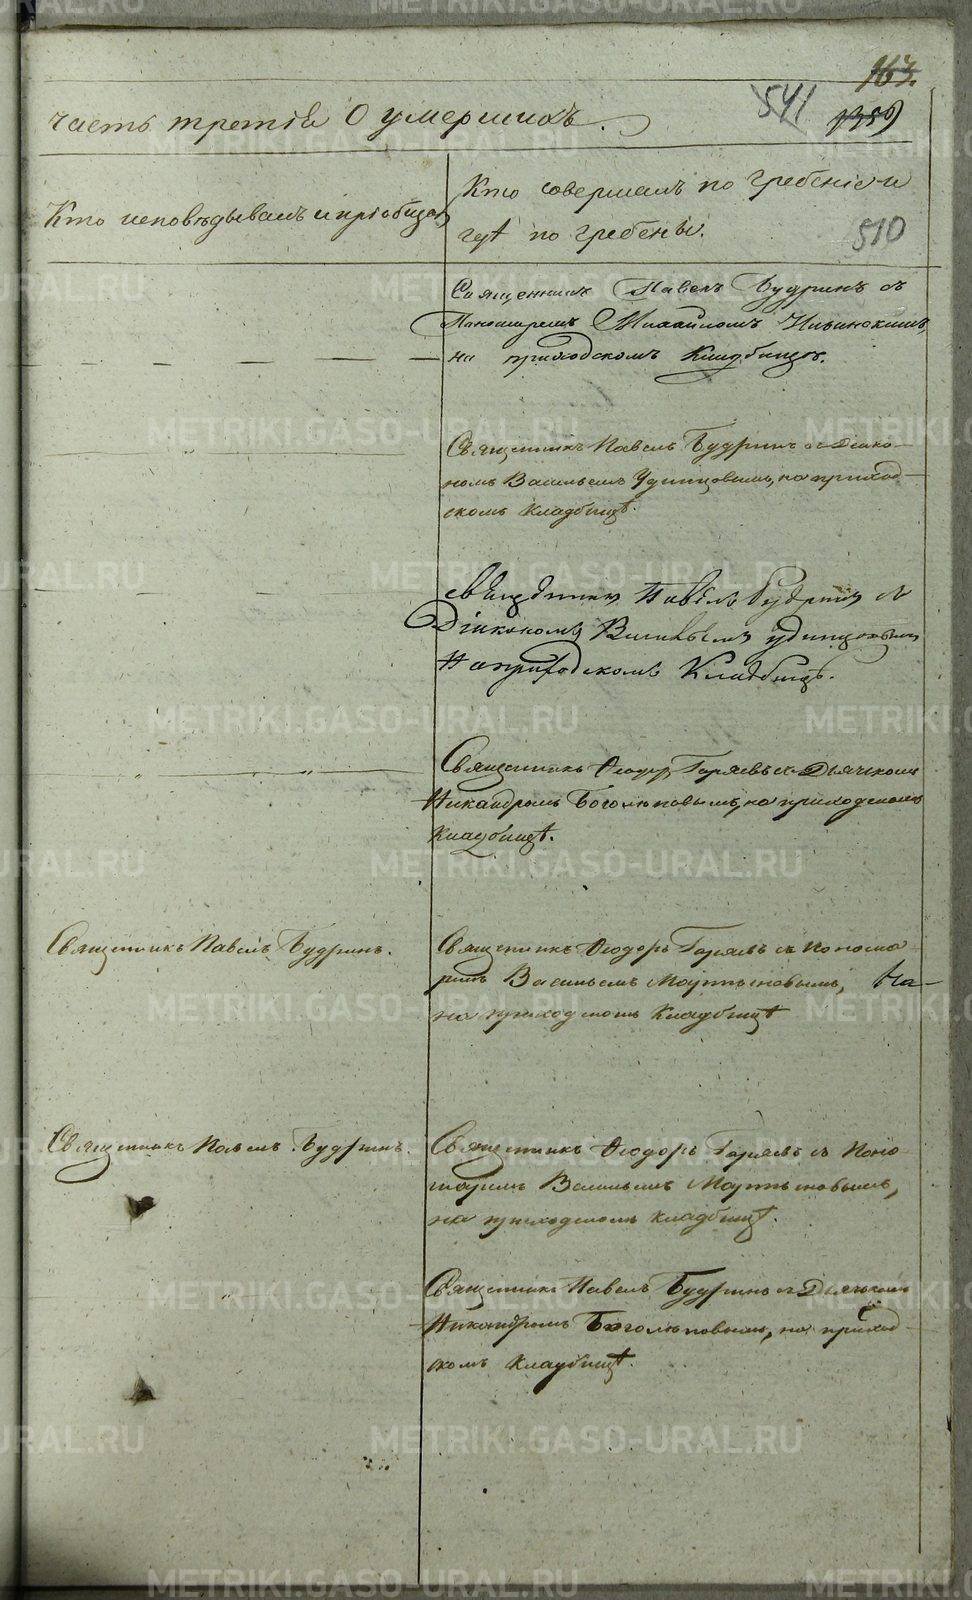 163.
541
1356
часть третія О умершихъ.
Кто исповѣдывалъ и пріобщалъ
Кто совершалъ по гребеніе и
гдѣ по гребены.
510
Священникъ Павелъ Будринъ съ
Пономаремъ Михайломъ Ильинскимъ,
на приходскомъ Кладбищѣ.
Священникъ Павелъ Будринъ съ Діако-
номъ Васильемъ Удинцовымъ, на приход-
скомъ кладбищѣ.
свѣщенникъ Павѣлъ Будринъ съ
Діякономъ Василъемъ удинцовымъ
На приходскомъ Кладбищѣ.
Священникъ Ѳеодоръ Гаряевъ съ Дьячкомъ
Никандромъ Боголюповымъ, на приходскомъ
кладбищѣ.
Священникъ Павелъ Будринъ.
Священникъ Ѳеодоръ Гаряевъ съ Понома-
ремъ Васильемъ Мартыновымъ, на-
на приходскомъ кладбищѣ
Священникъ Павелъ Будринъ.
Священникъ Ѳеодоръ Гаряевъ съ Поно-
маремъ Васильемъ Мартыновымъ,
на приходскомъ кладбищѣ.
Священникъ Павелъ Будринъ съ Дьячкомъ
Никандромъ Боголюповымъ, на приход-
скомъ кладбищѣ.
METRIKI.GASO-URAL.RU